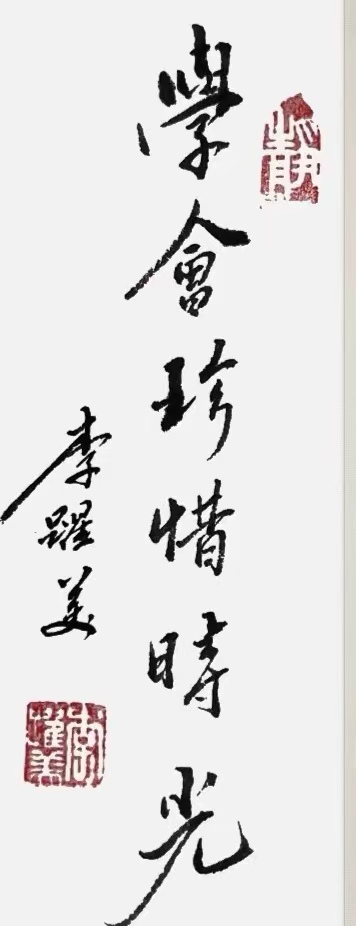 學會珍惜時光
李躍美